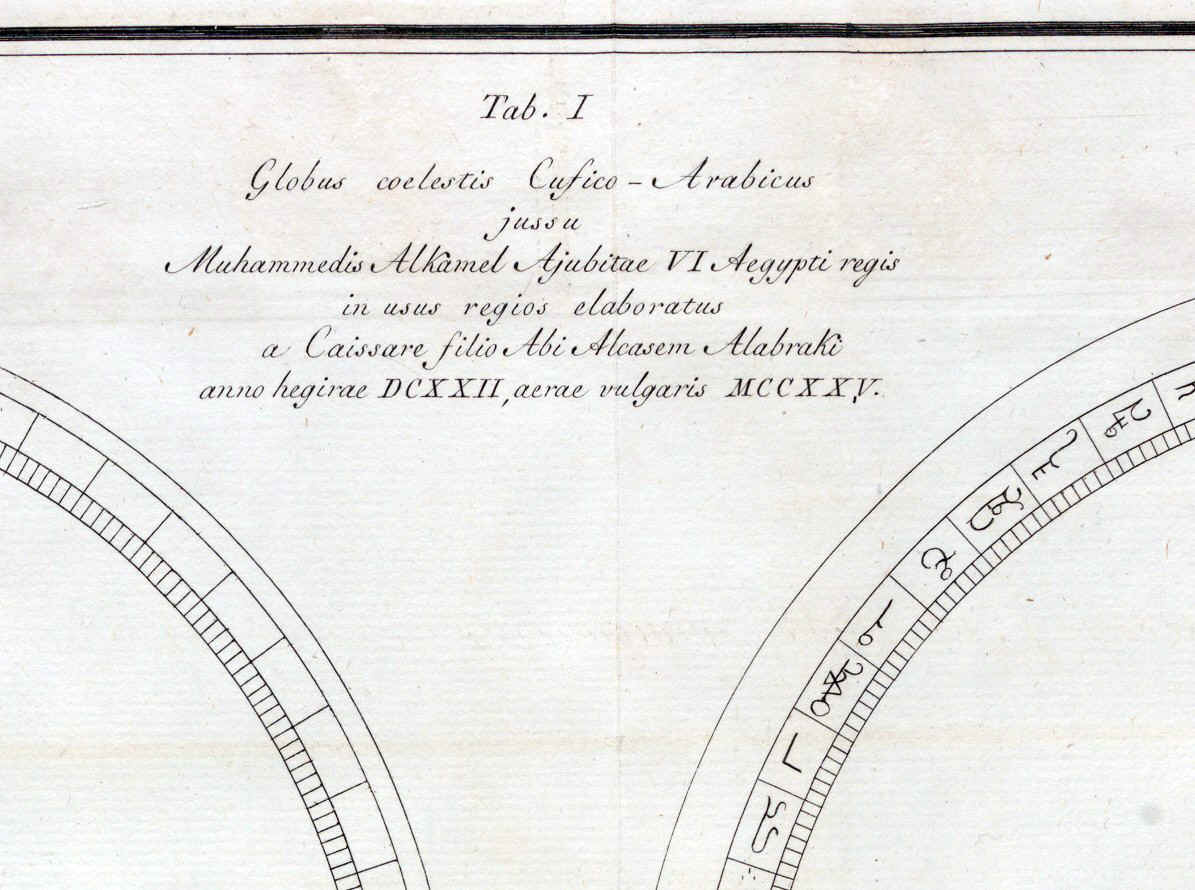 Tab. I
Globus coelestis Cufico - Arabicus
jussu
Muhammedis Alkâmel Ajubitae VI Aegypti regis
in usus regios elaboratus
a Caissare filio Abi Alcasem Alabraki
anno hegirae DCXXII, aerae vulgaris MCCXXV.